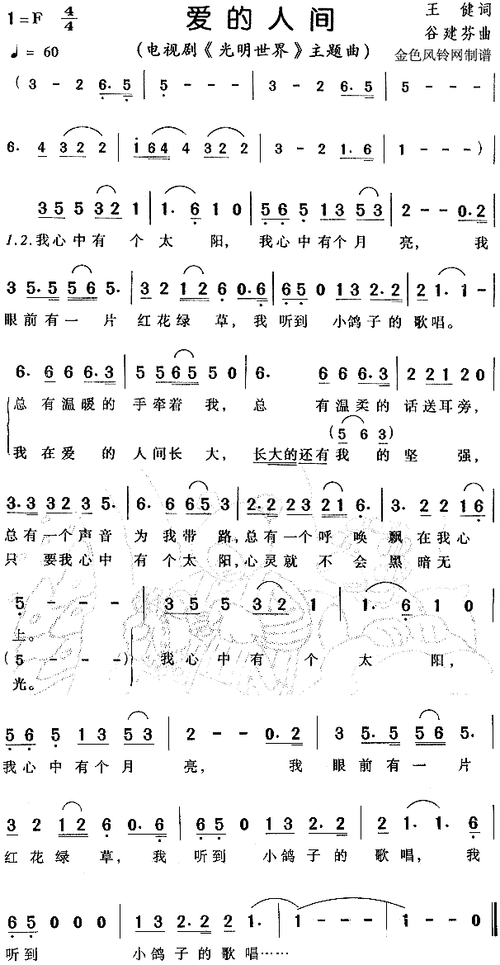 爱的人间
1=F 4/4
♩= 60
(电视剧《光明世界》主题曲)
王 健词
谷建芬曲
金色风铃网制谱
(3 - 2 6. 5 | 5 - - - | 3 - 2 6. 5 | 5 - - -
6. 4 3 2 2 | i 6 4 4 3 2 2 | 3 - 2 1. 6 | 1 - - -) |
3 5 5 3 2 1 | 1. 6 1 0 | 5 6 5 1 3 5 3 | 2 - - 0. 2
1.2.我心中有 个 太 阳, 我心中有个月 亮, 我
3 5. 5 5 6 5. | 3 2 1 2 6 0. 6 | 6 5 0 1 3 2. 2 | 2 1. 1 -
眼前有一 片 红花绿 草,我 听到 小鸽子的 歌唱。
6. 6 6 6. 3 | 5 5 6 5 5 0 | 6. 6 6 6. 3 | 2 2 1 2 0
总 有温暖的 手牵着 我, 总 有温柔的 话送耳旁,
(5 6 3)
我 在爱 的 人间长 大, 长大的还有我 的 坚 强,
3. 3 3 2 3 5. | 6. 6 6 5 3 | 2. 2 2 3 2 1 6. | 3. 2 1 6
总 有一个声音 为 我 带 路,总有一个呼 唤 飘 在我心
只 要我心中 有 个太 阳,心灵就 不 会 黑暗无
5 - - - | 3 5 5 3 2 1 | 1. 6 1 0
上。
(5 - - -)
我心中有 个 太 阳,
光。
5 6 5 1 3 5 3 | 2 - - 0. 2 | 3 5. 5 5 6 5.
我心中有个月 亮, 我 眼前有一 片
3 2 1 2 6 0. 6 | 6 5 0 1 3 2. 2 | 2 1. 1. 6
红花绿 草, 我 听到 小鸽子的 歌唱, 我
6 5 0 0 0 | 1 3 2. 2 2 1. | 1 - - - | 1 - - 0 ‖
听到 小鸽子的歌唱……